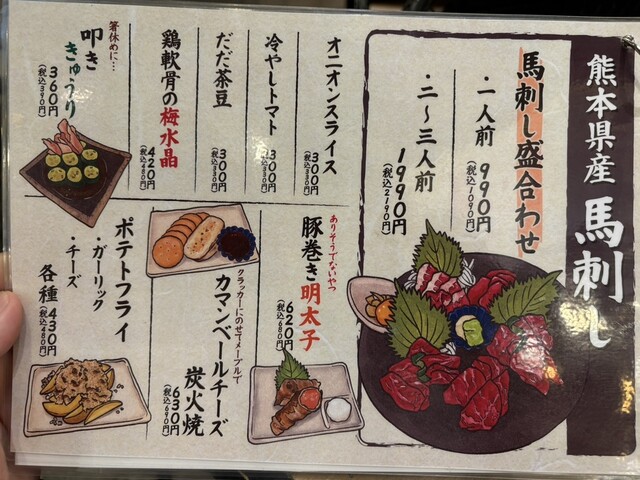 熊本県産 馬刺し
馬刺し盛合わせ
・一人前 990円
(税込1090円)
・二〜三人前
1990円
(税込2190円)
オニオンスライス
300円
(税込330円)
冷やしトマト
300円
(税込330円)
だだ茶豆
300円
(税込330円)
鶏軟骨の梅水晶
420円
(税込460円)
箸休めに…
叩き
きゅうり
360円
(税込390円)
ありそうでないやつ
豚巻き明太子
620円
(税込680円)
クラッカーにのせてメープルで
カマンベールチーズ
炭火焼
630円
(税込690円)
ポテトフライ
・ガーリック
・チーズ
各種 430円